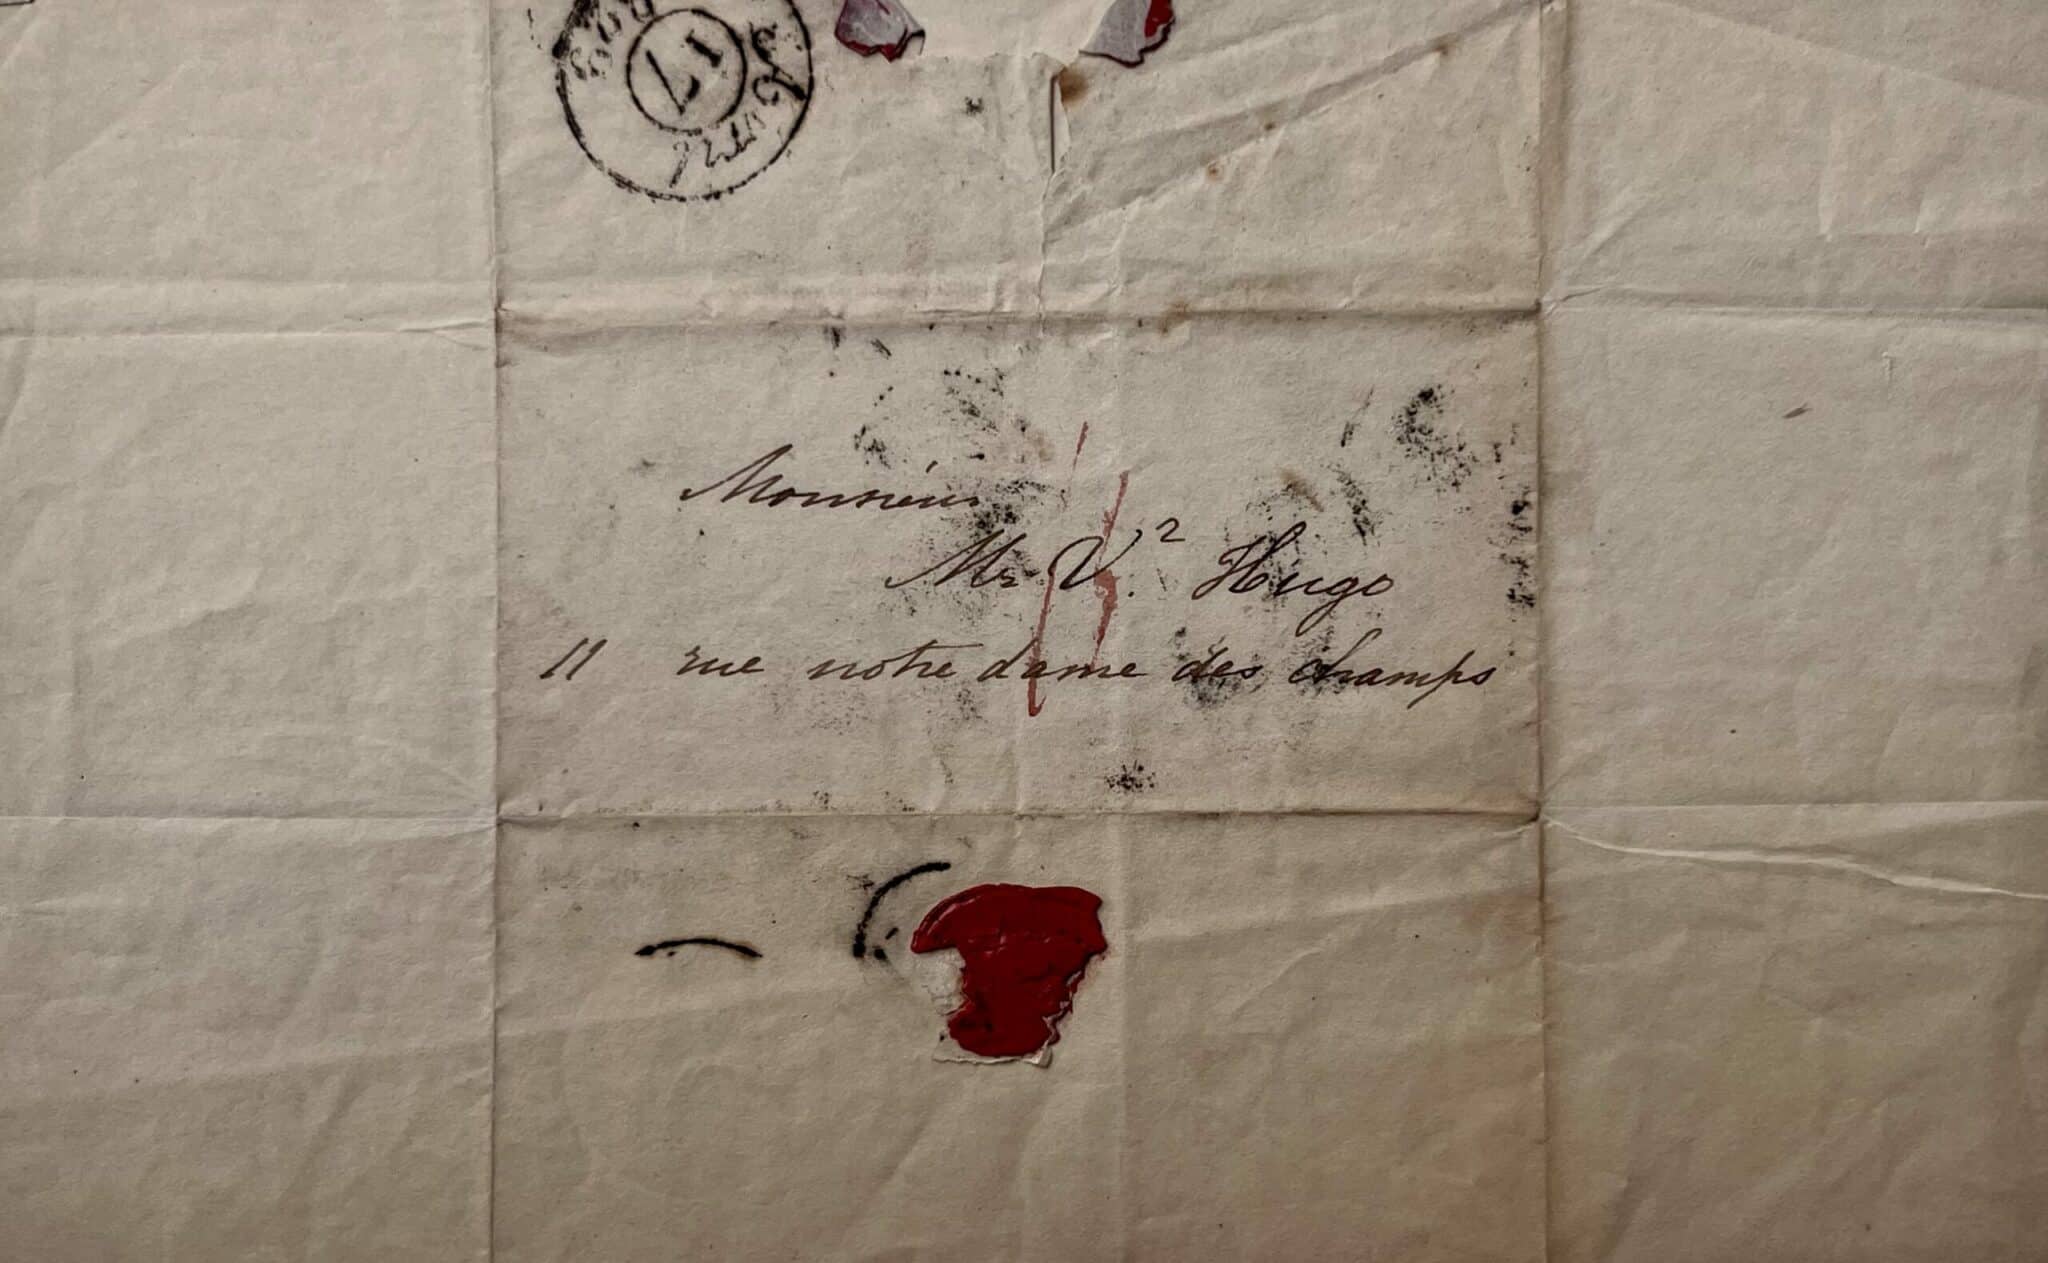 17
Avril
Monsieur
Mr V.r Hugo
11 rue notre dame des champs